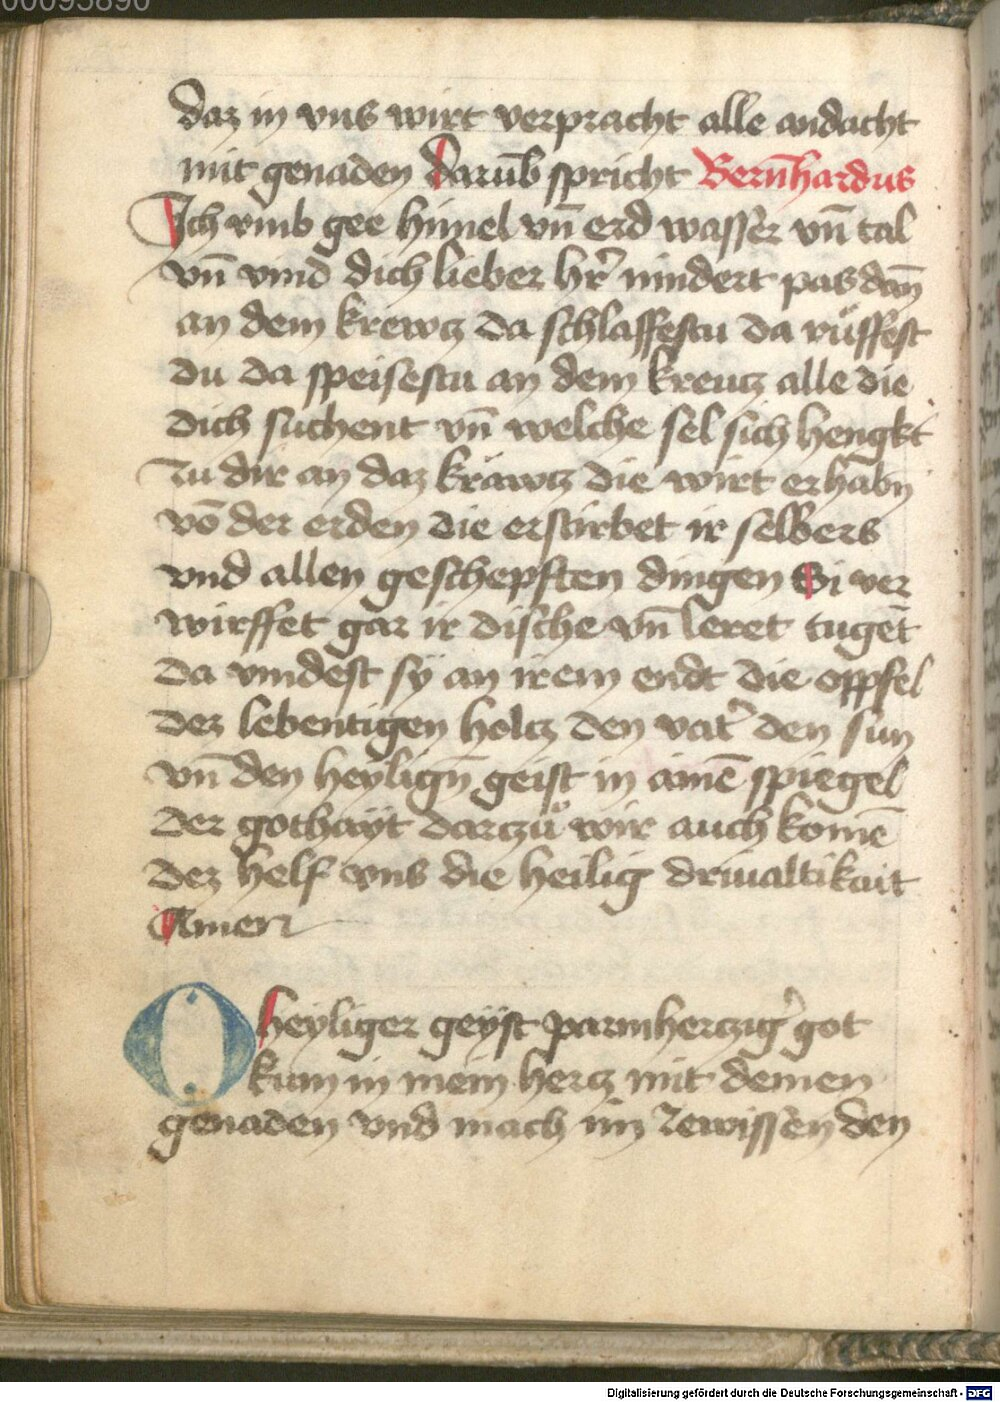 00093890
daz in vns wirt verpracht alle andacht
mit genaden Darūb spricht Bern̄hardus
Ich vmb gee himel vn̄ erd wasser vn̄ tal
vn̄ vind dich lieber hr̄ nindert pas dan̄
an dem krewtz da schlaffestu da růffest
du da speisestu an dem kreutz alle die
dich suchent vn̄ welche sel sich hengkt
zu dir an daz kräwtz die wirt erhabn
vō der erden die erstirbet ir selbers
vnd allen geschepften dingen Si ver
wirffet gar ir dische vn̄ leret tugēt
da vindest sy an irem endt die oppfel
dez lebentigen holtz den vat̄ den sun
vn̄ den heylign̄ geist in ainē spiegel
der gothayt dartzů wir auch komē
dez helf vns die heilig driualtikait
Amen
O heyliger geyst parmhertziḡ got
kum in mein hertz mit deinen
genaden vnd mach im zewissen den
Digitalisierung gefördert durch die Deutsche Forschungsgemeinschaft - DFG